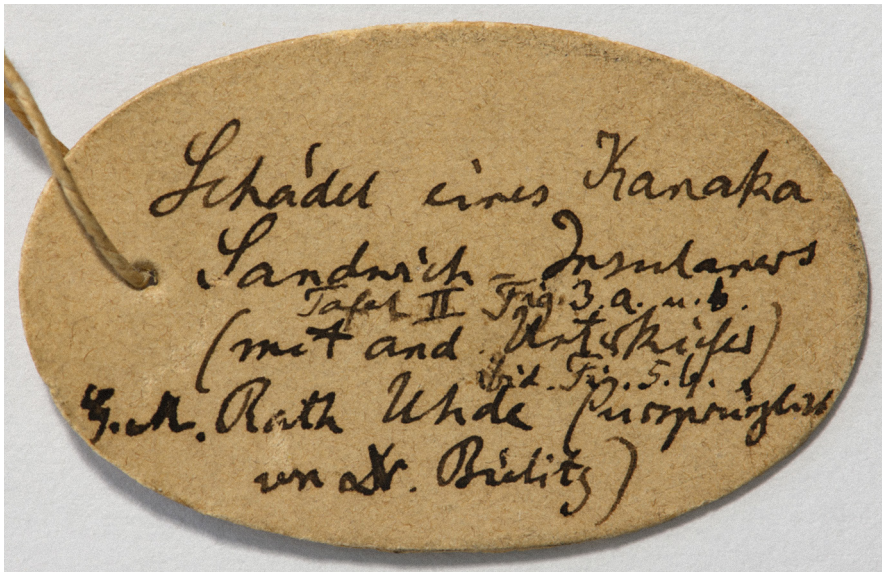 Schädel eines Kanaka
Sandwich-Insulaners
Tafel II Fig. 3. a. u. b.
(mit and. Unterkiefer)
ibid. Fig. 5. b.
G. M. Rath Uhde (ursprünglich
von Dr. Bielitz)